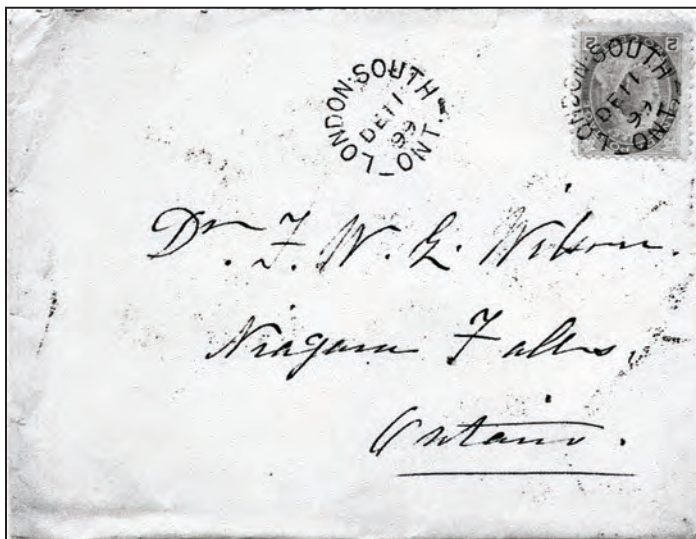 LONDON·SOUTH ONT.
DE 11
99
2 2
LONDON·SOUTH ONT.
DE 11
99
Dr. F. W. E. Wilson.
Niagara Falls,
Ontario.